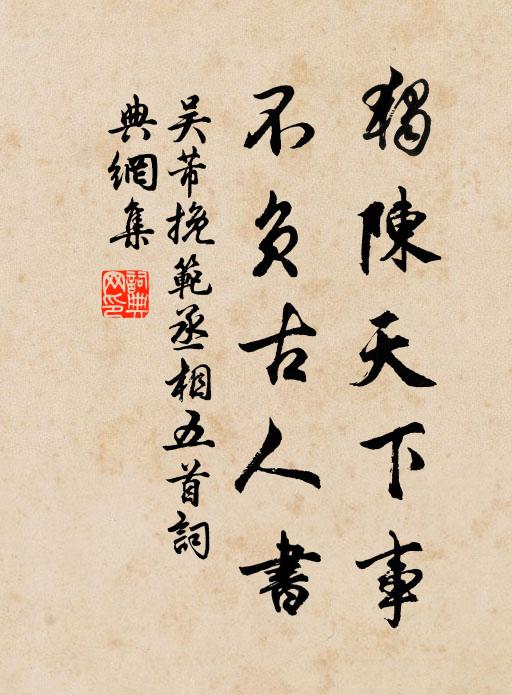 獨陳天下事
不負古人書
吴芾挽範丞相五首詞
典網集
詞典
网印